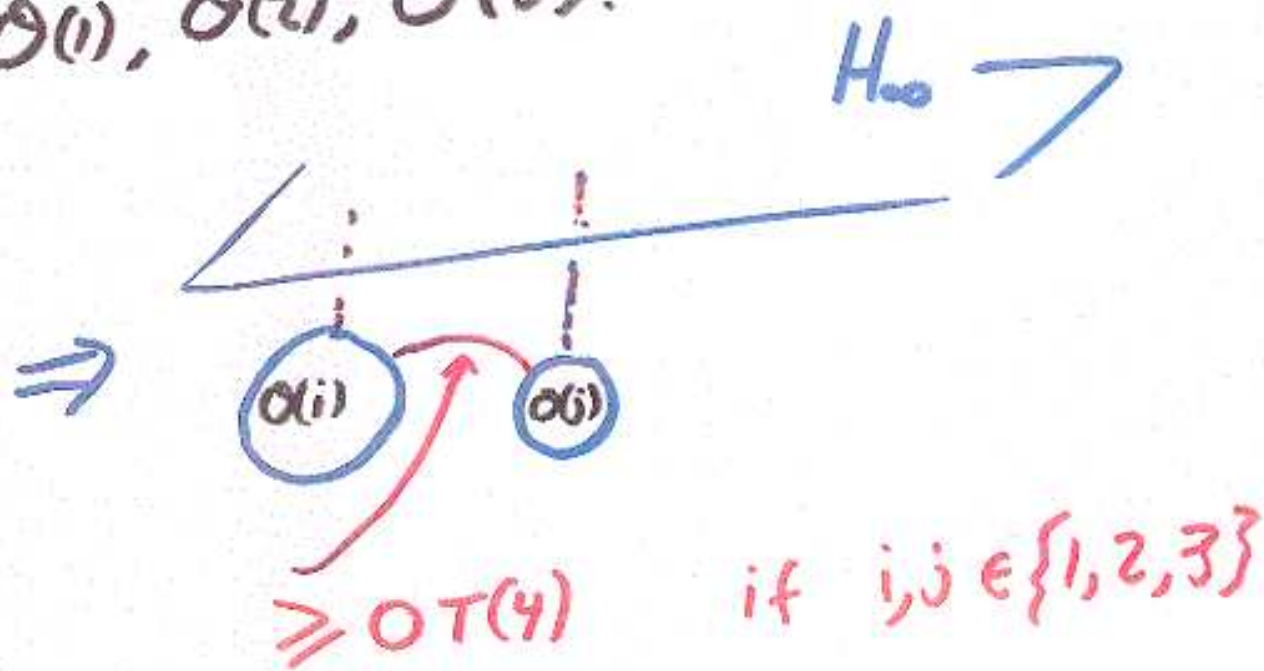 O(1), O(2), O(3).
H∞
⇒
O(i) O(j)
≥ OT(4) if i,j ∈ {1,2,3}